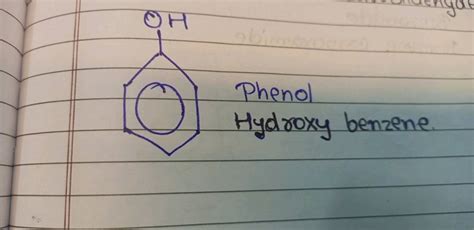 OH
Phenol
Hydroxy benzene.